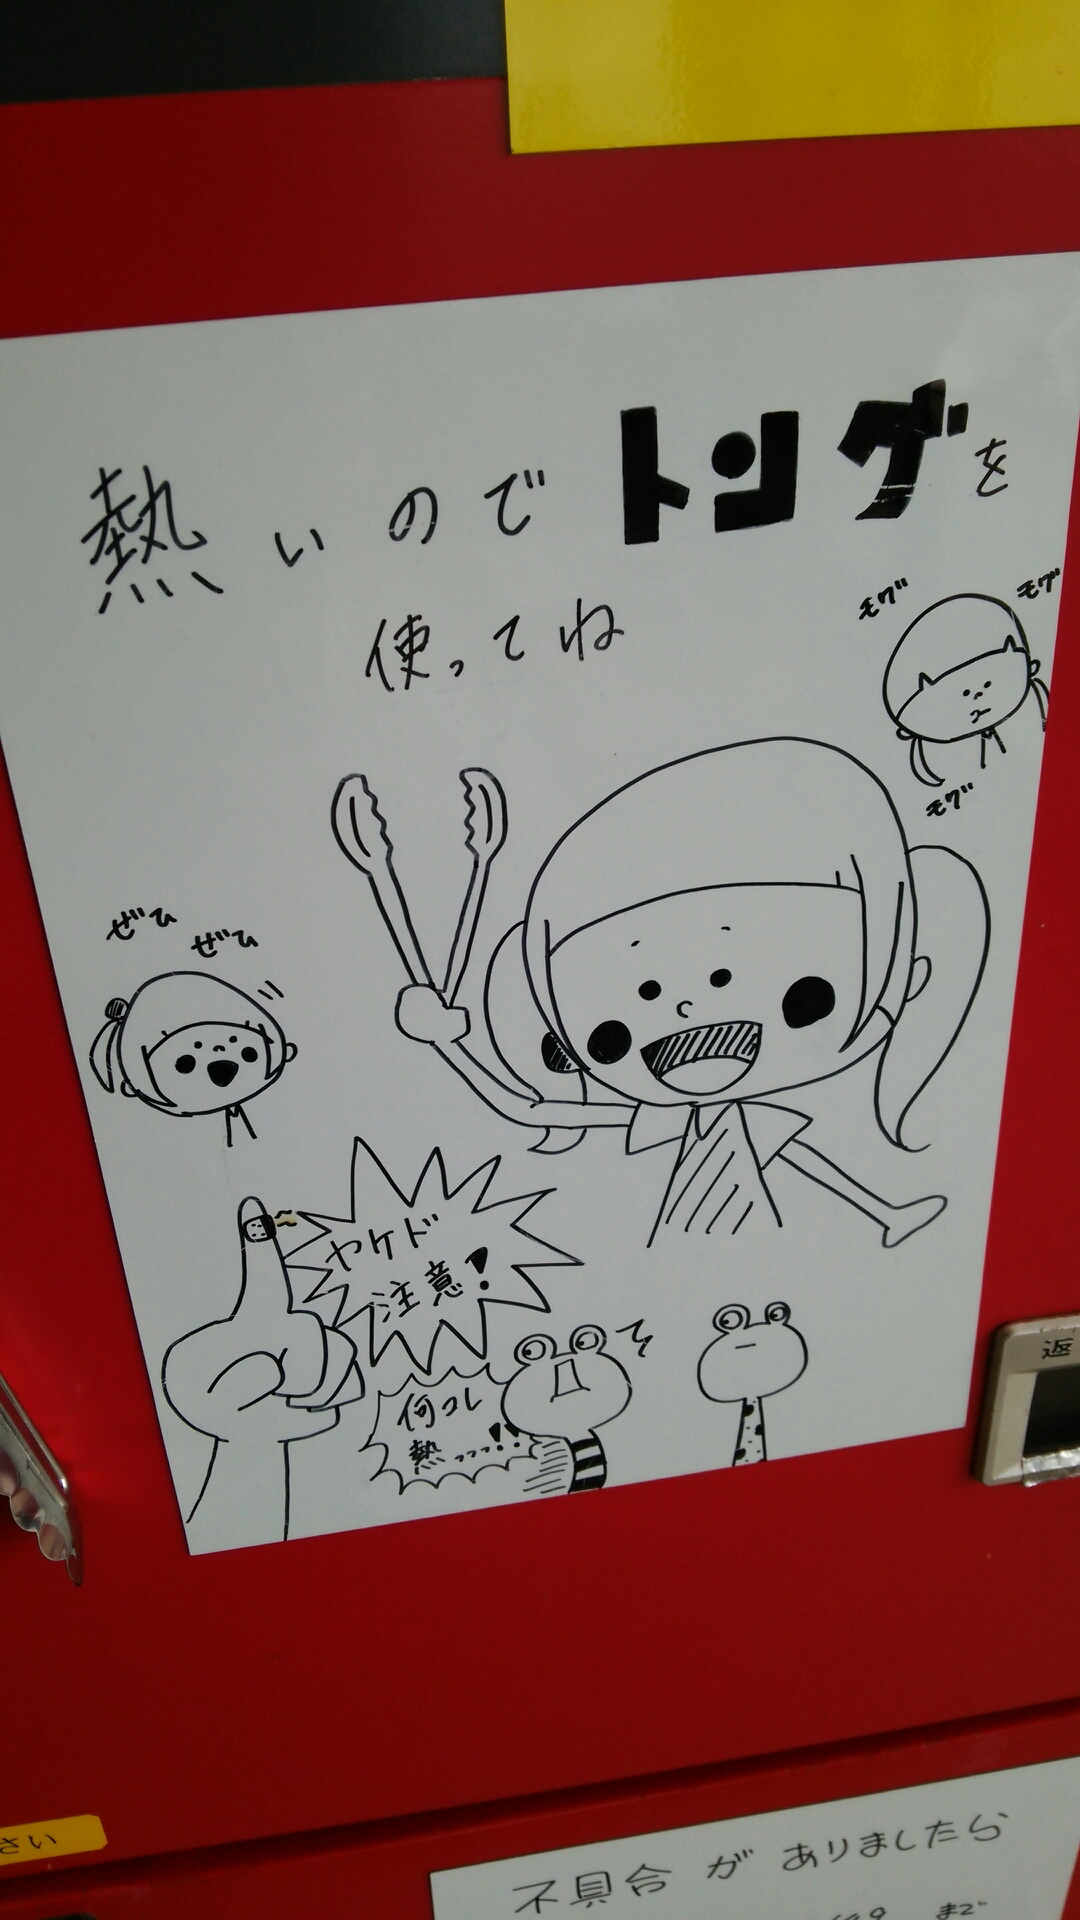 熱いのでトングを
使ってね
モグ
モグ
モグ
ぜひ
ぜひ
ヤケド
注意!
何コレ
熱っっっ!!
返
さい
不具合がありましたら
まで